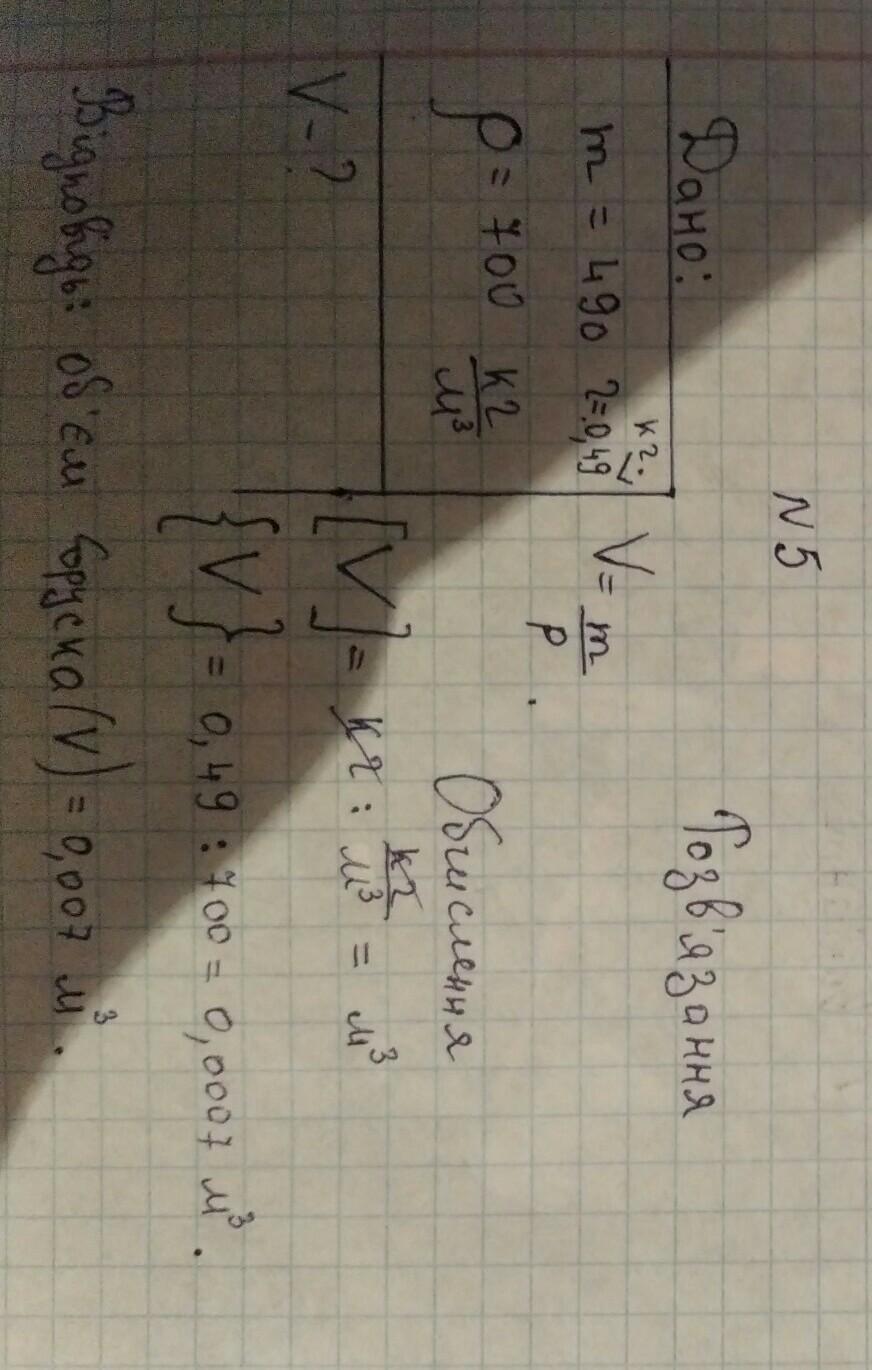 N 5
Дано:
m = 490 г = 0,49 кг.
ρ = 700 кг/м³
V - ?
Розв'язання
V = m/ρ.
Обчислення
[V] = кг : кг/м³ = м³
{V} = 0,49 : 700 = 0,0007 м³.
Відповідь: об'єм бруска (V) = 0,007 м³.